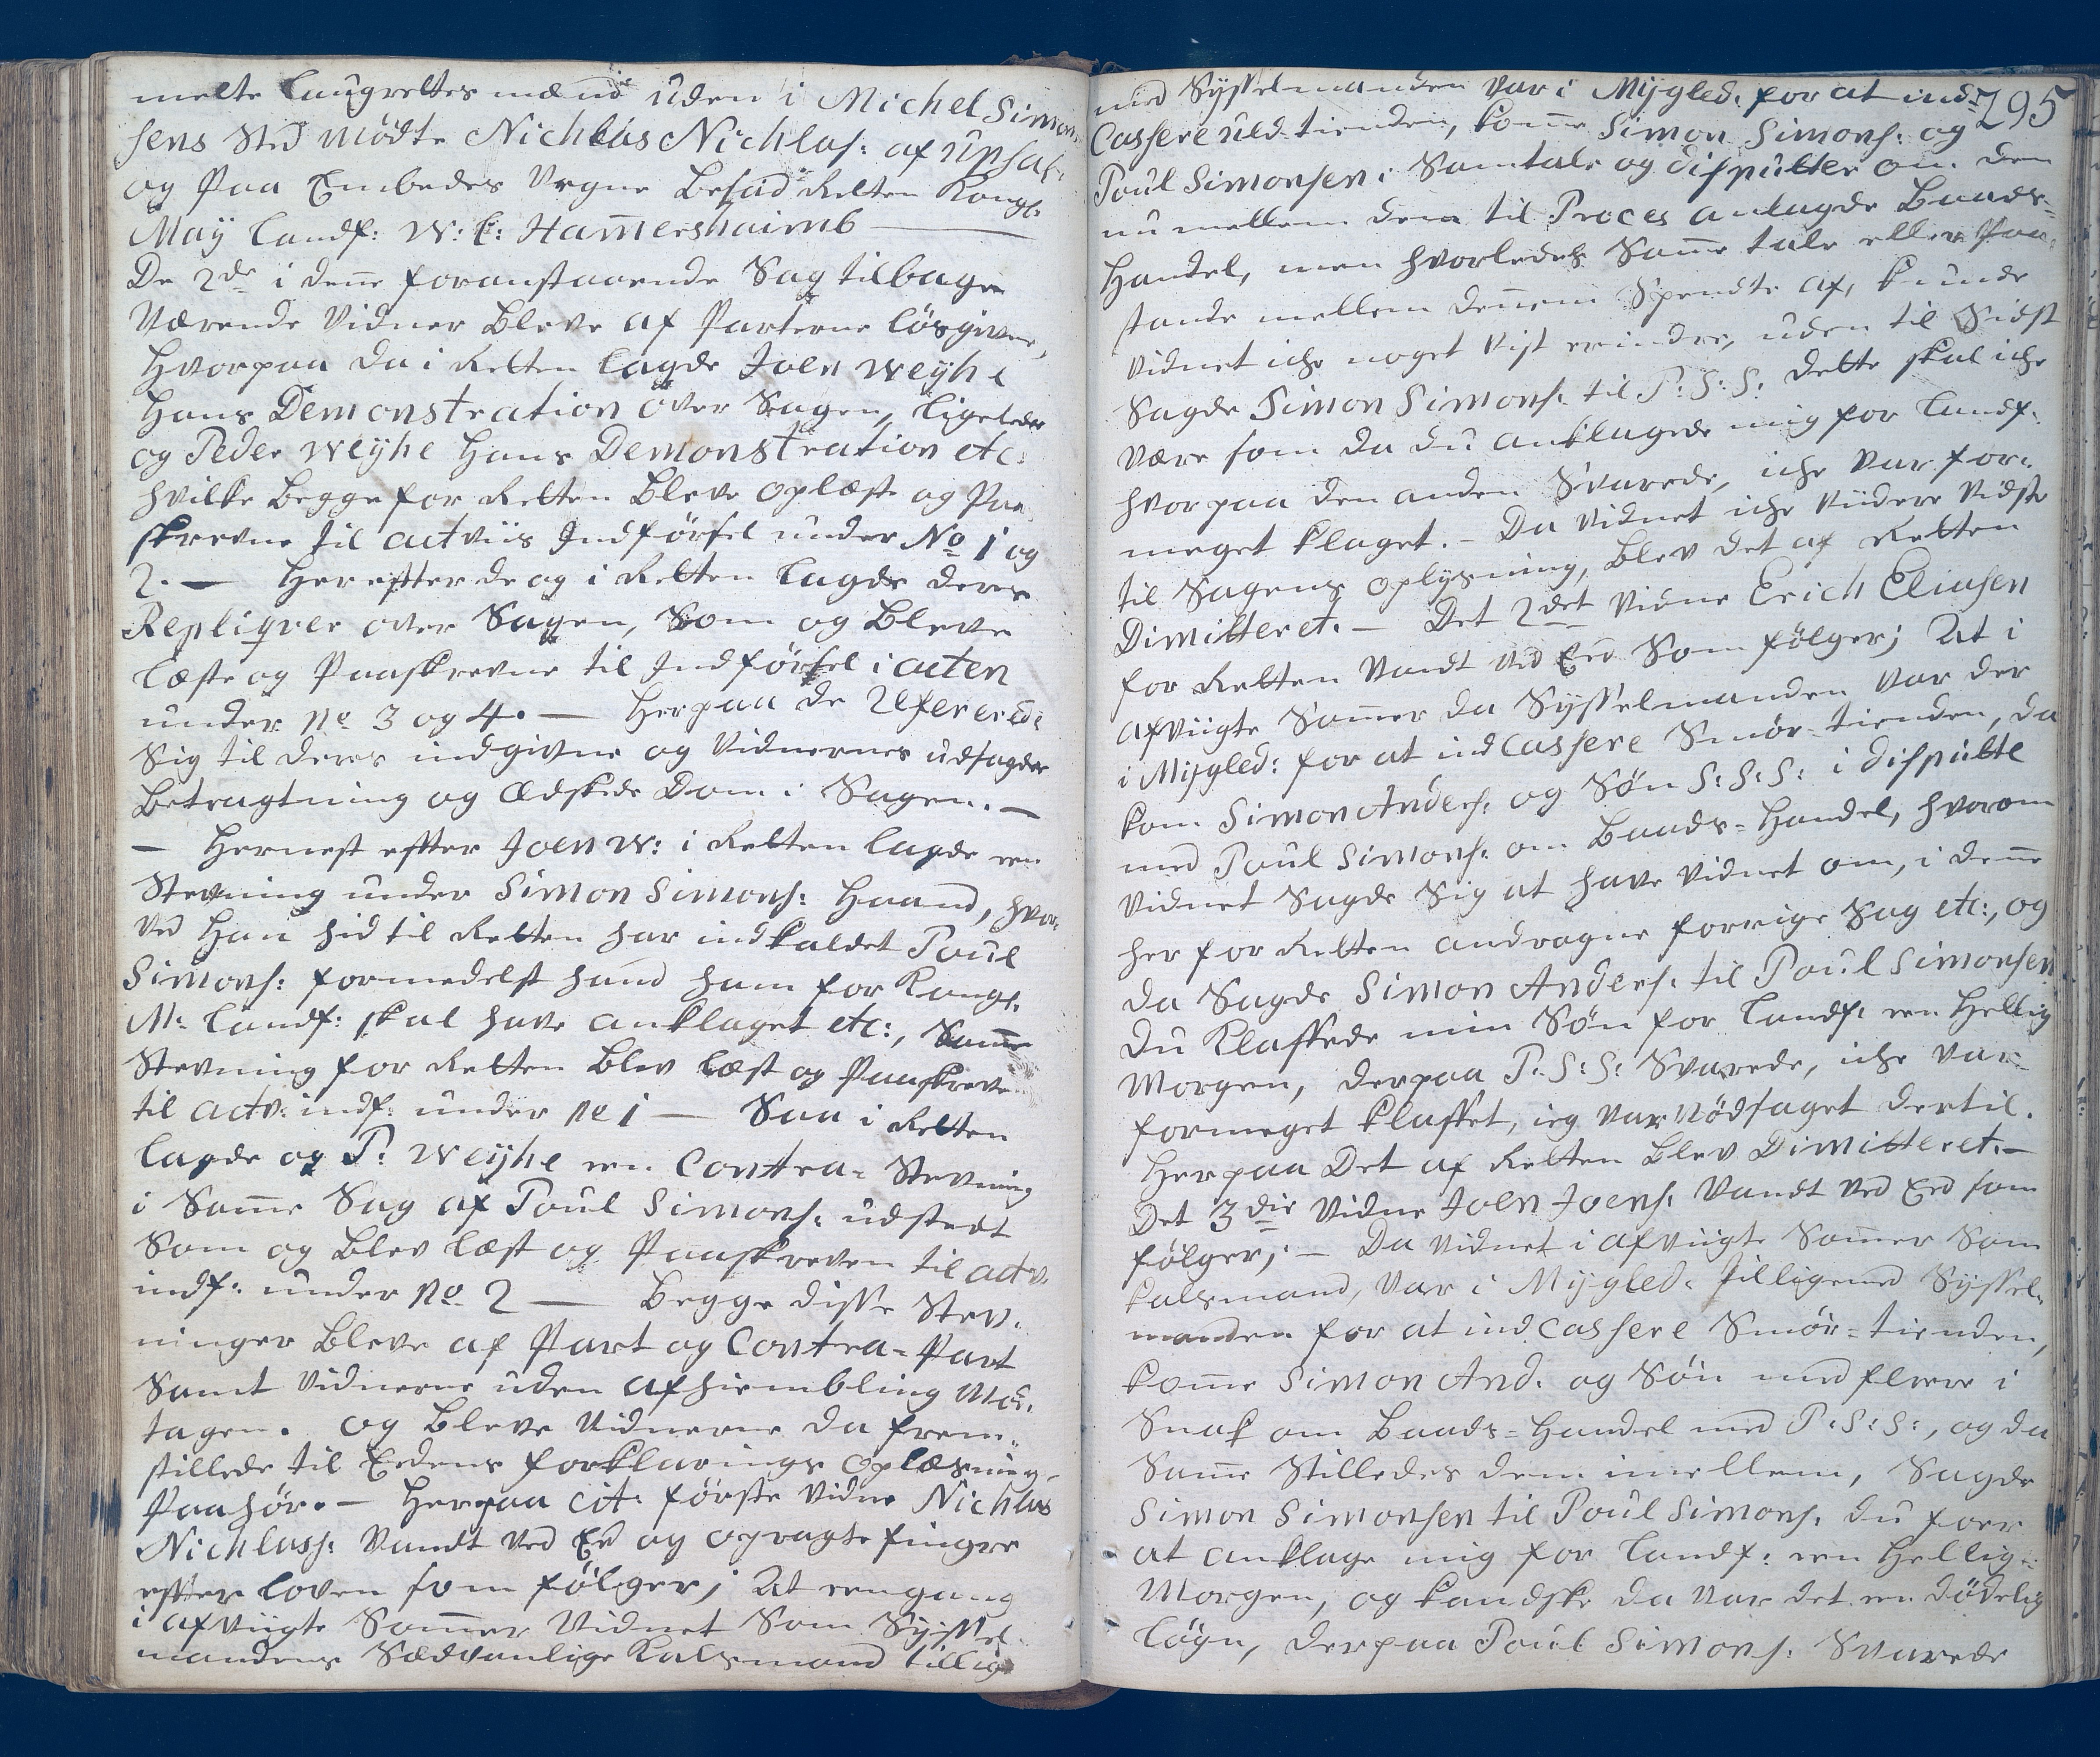 melte Laugrettes mænd uden i Michel Simon
sens Sted mødte Nichlas Nichlas: af Upsal:
og Paa Embedes Vegne Besad Retten Kongl:
May Landf: W: E: Ham̅ershaimb —
De 2de i den̅e foranstaaende Sag tilbage
Værende Vidner Bleve af Parterne løsgivne,
Hvorpaa da i Retten lagde Joen Weyhe
Hans Demonstration over Sagen, ligeledes
og Peder Weyhe Hans Demonstration etc:
hvilke Begge for Retten Bleve oplæste og Paa
skrevne til actviis Indførsel under No 1 og
2. — Herefter de og i Retten lagde deres
Repliqver over Sagen, Som og Bleve
læste og Paaskrevne til Indførsel i acten
under No 3 og 4. — Herpaa de Refererede
Sig til deres indgivne og Vidnernes udsagders
Betragtning og Ædskede Dom i Sagen. —
— Hernest efter Joen W: i Retten lagde een
Stevning under Simon Simons: Haand, hvor
Ved Han hid til Retten har indkaldet Poul
Simons: formedelst hand ham for Kongl:
M: Landf: skal have anklaget etc:, Sam̅e
Stevning for Retten Blev læst og Paaskreve
til actv: indf: under No 1 — Saa i Retten
lagde og P: Weyhe een Contra-Stevning
i Sam̅e Sag af Poul Simons: udstedt
Som og Blev læst og Paaskreven til actv.
indf: under No 2 — Begge disse Stev:
ninger Bleve af Part og Contra-Part
Samt Vidnerne uden afhiembling Mod:
tagen. og Bleve Vidnerne da frem:
stillede til Eedens forklarings oplæsning
Paahør. — Herpaa cit: første Vidne Nichlas
Nichlass: Vandt ved Ed og opragte fingre
efter loven som følger; At eengang
i afvigte Som̅er Vidnet Som Syssel
mandens Sædvanlige Kalsmand tillige
295
med Sysselmanden var i Mygled: for at ind
Cassere uld-tienden, kom̅e Simon Simons: og
Poul Simonsen i Samtale og disputter om den
nu mellem dem til Proces anlagde Baads=
Handel, men hvorledes Sam̅e tale eller Paa
stande mellem dennem Spendte af, kunde
Vidnet iche noget vist erindre, uden til Sidst
Sagde Simon Simons: til P: S: S: dette skal iche
være som da du anklagede mig for Landf:
hvorpaa den anden Svarede, iche var for:
meget klaget. — Da Vidnet iche Viidere Vidste
til Sagens oplysning, Blev det af Retten
Dimitteret. — Det 2det Vidne Erich Eliasen
for Retten Vandt ved Eed Som følger; At i
afviigte Som̅er da Sysselmanden var der
i Mygled: for at ind Cassere Smør-tienden, da
kom Simon Anders: og Søn S: S: S: i disputte
med Poul Simons: om Baads=Handel, hvorom
Vidnet Sagde Sig at have vidnet om, i den̅e
her for Retten andragne forrige Sag etc:, og
da Sagde Simon Anders: til Poul Simonsen
du Klaffede min Søn for Landf: een Hellig
Morgen, derpaa P: S: S: Svarede, iche var
formeget klaffet, ieg var Nødsaget dertil.
Herpaa Det af Retten Blev Dimitteret. —
Det 3die Vidne Joen Joens: Vandt ved Eed som
følger; — Da Vidnet i afviigte Som̅er Som
kalsmand, var i Mygled: Tilligemed Syssel:
manden for at ind Cassere Smør-tienden,
kom̅e Simon And. og Søn med fleere i
Snak om Baads=Handel med P: S: S:, og da
Sam̅e Stilledes dem imellem, Sagde
Simon Simonsen til Poul Simons: du foer
at anklage mig for Landf: een Hellig:
Morgen, og kandske da var det een dødelig
løgn, derpaa Poul Simons: Svarede